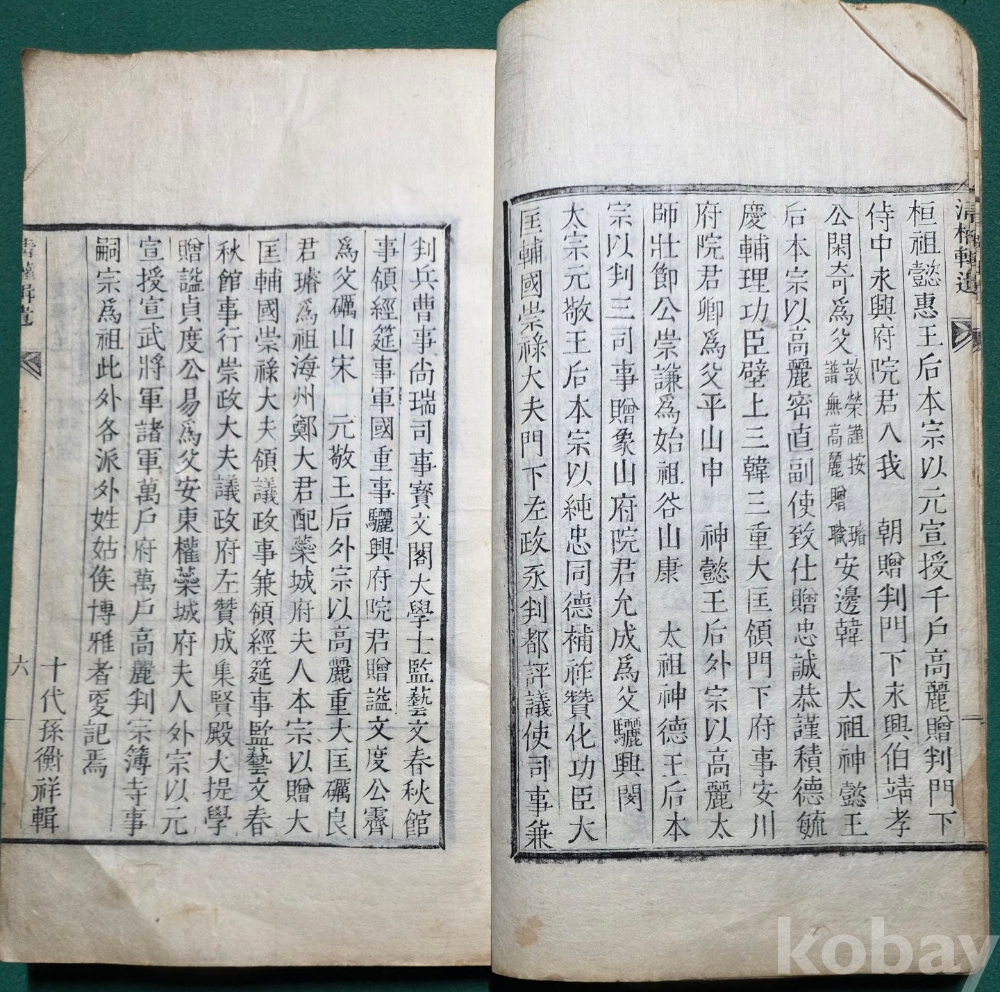 桓祖懿惠王后本宗以元宣授千戶高麗贈判門下
侍中永興府院君八我 朝贈判門下永興伯靖孝
公閑奇爲父敦榮謹按璿譜無高麗贈職安邊韓 太祖神懿王
后本宗以高麗密直副使致仕贈忠誠恭謹積德毓
慶輔理功臣壁上三韓三重大匡領門下府事安川
府院君卿爲父平山申 神懿王后外宗以高麗太
師壯節公崇謙爲始祖谷山康 太祖神德王后本
宗以判三司事贈象山府院君允成爲父驪興閔
太宗元敬王后本宗以純忠同德補祚贊化功臣大
匡輔國崇祿大夫門下左政丞判都評議使司事兼
判兵曹事尙瑞司事寶文閣大學士監藝文春秋館
事領經筵事軍國重事驪興府院君贈諡文度公霽
爲父礪山宋 元敬王后外宗以高麗重大匡礪良
君璿爲祖海州鄭大君配蘂城府夫人本宗以贈大
匡輔國崇祿大夫領議政事兼領經筵事監藝文春
秋館事行崇政大夫議政府左贊成集賢殿大提學
贈諡貞度公易爲父安東權蘂城府夫人外宗以元
宣授宣武將軍諸軍萬戶府萬戶高麗判宗簿寺事
嗣宗爲祖此外各派外姓姑俟博雅者更記焉
十代孫衡祥輯
六
kobay